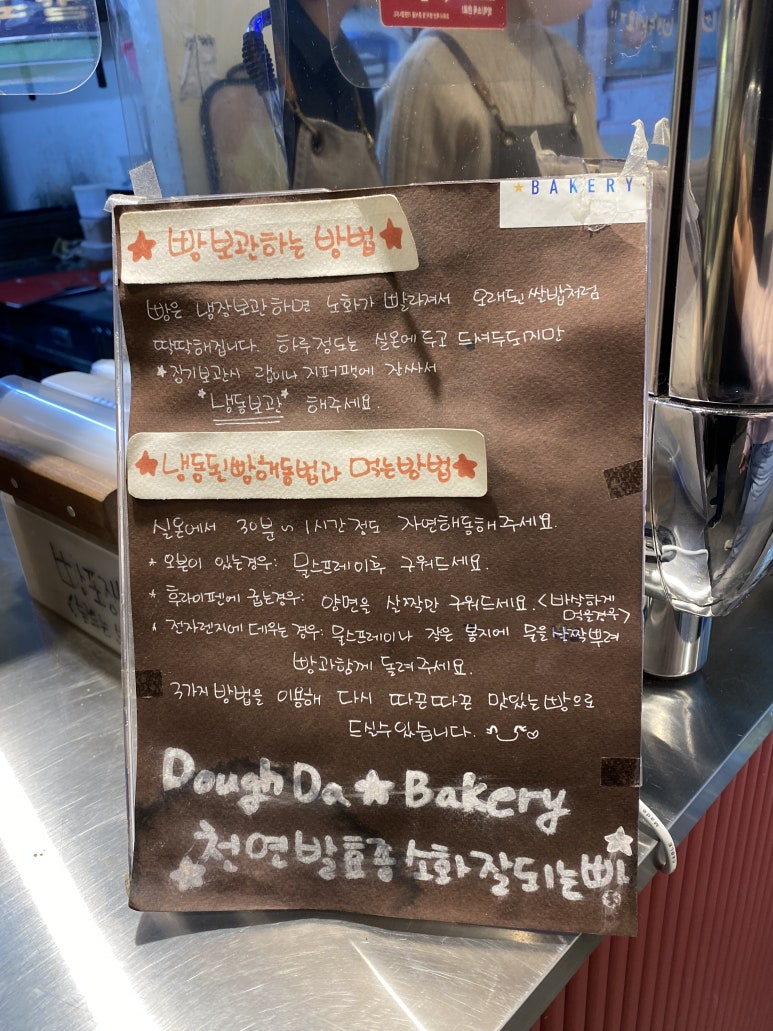 BAKERY
빵 보관하는 방법
빵은 냉장보관하면 노화가 빨라져서 오래된 쌀밥처럼
딱딱해집니다. 하루정도는 실온에 두고 드셔두되지만
장기보관시 랩이나 지퍼팩에 잘싸서
"냉동보관" 해주세요.
냉동된빵해동법과 먹는방법
실온에서 30분~1시간정도 자연해동해주세요.
* 오븐이 있는경우: 물스프레이후 구워드세요.
* 후라이펜에 굽는경우: 양면을 살짝만 구워드세요. <바삭하게
먹을경우>
* 전자렌지에 데우는 경우: 물스프레이나 작은 봉지에 물을 살짝뿌려
빵과함께 돌려주세요.
3가지방법을 이용해 다시 따끈따끈 맛있는빵으로
드실수있습니다.
Dough Da★Bakery
천연발효종 소화잘되는빵